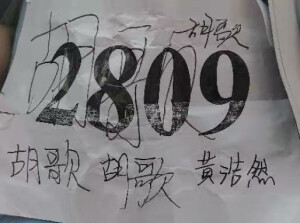 胡歌
胡歌
2809
胡歌 胡歌 黄浩然